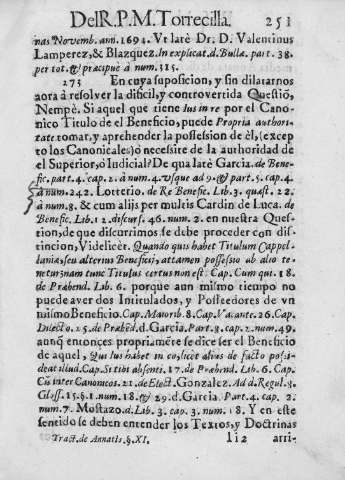 Del R. P. M. Torrecilla. 251
nas Novemb. ann. 1694. Vt latè Dr. D. Valentinus
Lamperez, & Blazquez. In explicat. d. Bullæ. part. 38.
per tot. & præcipuè à num. 315.
273 En cuya suposicion, y sin dilatarnos
aora à resolver la dificil, y controvertida Questiõ,
Nempè. Si aquel que tiene Ius in re por el Cano-
nico Titulo de el Beneficio, puede Propria authori-
tate tomar, y aprehender la possession de èl, (excep
to los Canonicales) ò necessite de la authoridad de
el Superior, ò Iudicial? De qua latè Garcia. de Bene-
fic. part. 4. cap. 2. à num. 4. vsque ad 9. & part. 5. cap. 4.
à num. 242. Lotterio. de Re Benefic. Lib. 3. quæst. 22.
à num. 8. & cum alijs per multis Cardin de Luca. de
Benefic. Lib. 12. discurs. 46. num. 2. en nuestra Ques-
tion, de que discurrimos se debe proceder con dis-
tincion, Videlicèt. Quando quis habet Titulum Cappel-
laniæ, seu alterius Beneficij, attamen possessio ab alio te-
netur; nam tunc Titulus certus non est: Cap. Cum qui. 18.
de Præbend. Lib. 6. porque aun mismo tiempo no
puede aver dos Intitulados, y Posseedores de vn
mismo Beneficio. Cap. Maiorib. 8. Cap. Vacante. 26. Cap.
Dilecto. 25. de Præbẽd. d. Garcia. Part. 8. cap. 2. num. 49.
aunq̃ entonçes propriamẽre se dice ser el Beneficio
de aquel, Qui Ius habet in eo, licèt alius de facto possi-
deat illud. Cap. Si tibi absenti. 17. de Præbend. Lib. 6. Cap.
Cũ inter Canonicos. 21. de Elect. Gonzalez. Ad d. Regul. 8.
Gloss. 15. §. 1. num. 18. & 29. d. Garcia. Part. 4. cap. 2.
num. 7. Mostazo. d. Lib. 3. cap. 3. num. 18. Y en este
sentido se deben entender los Textos, y Doctrinas
Tract. de Annatis. §. XI. Iiz arri-